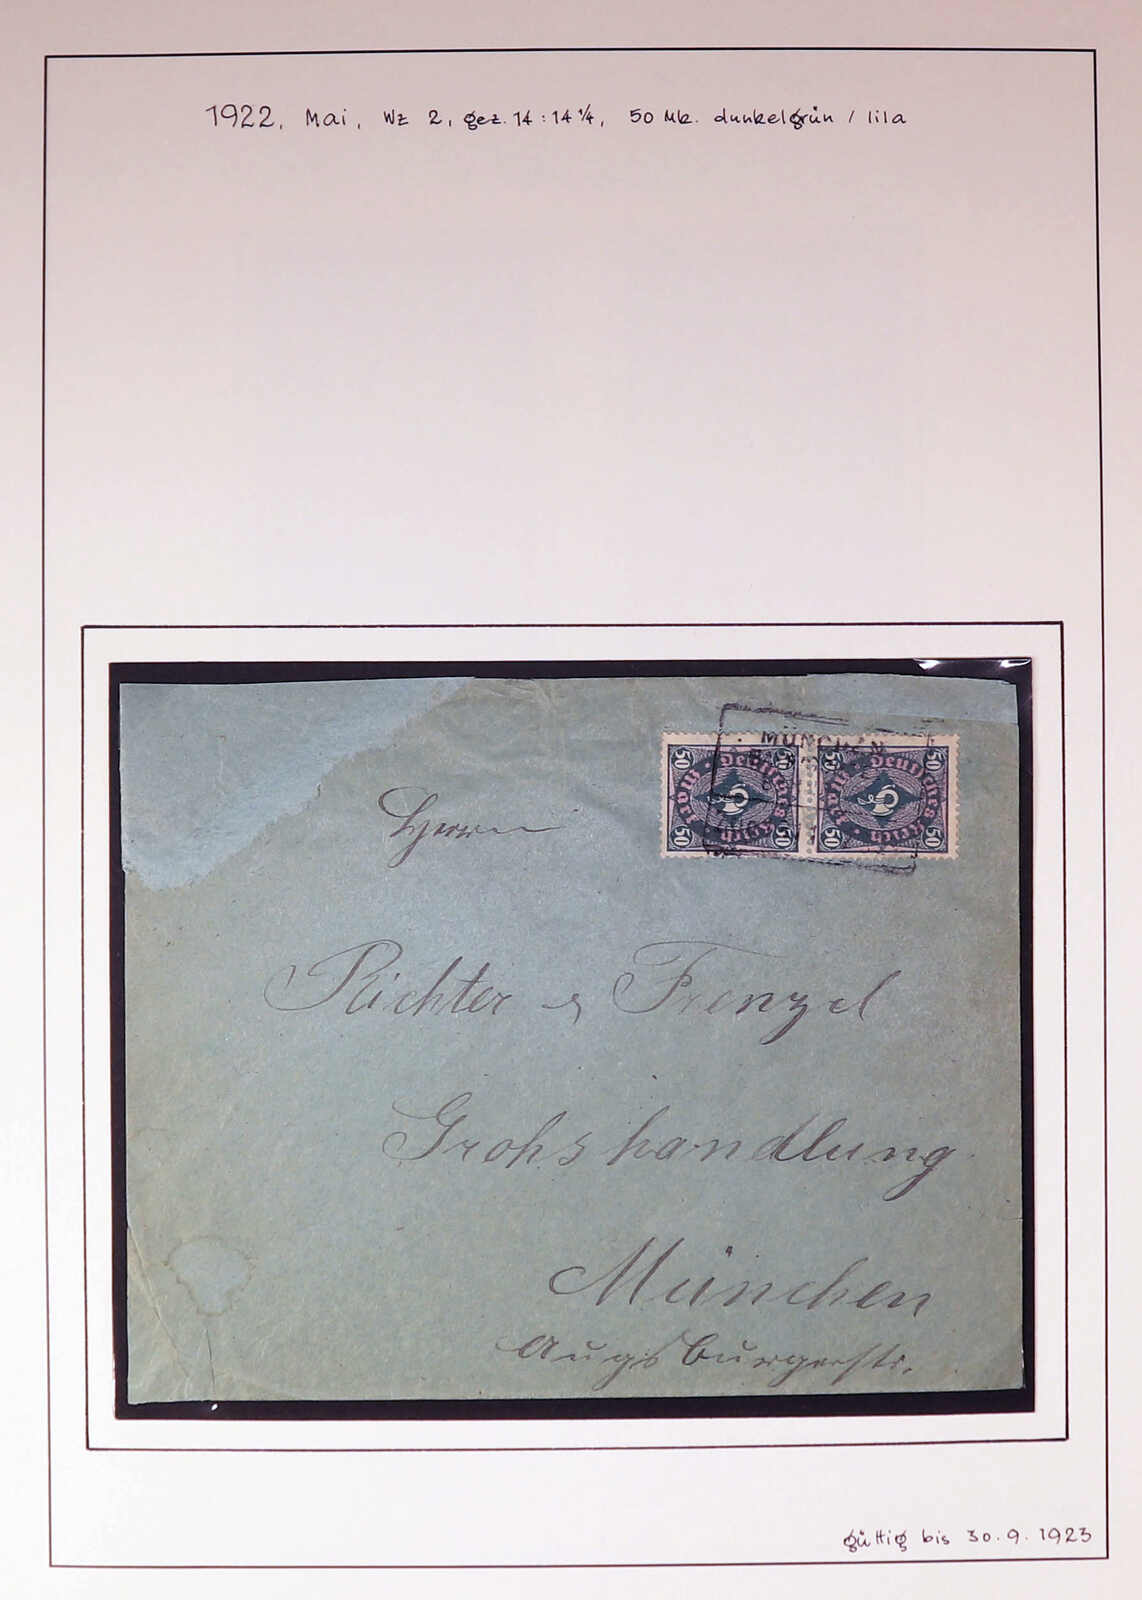 1922, Mai, Wz 2, gez. 14 : 14 1/4, 50 Mk. dunkelgrün / lila
MÜNCHEN
50 50 50 50
Deutsches Reich Deutsches Reich
50 50 50 50
Herrn
Richter & Frenzel
Grohshandlung
München
Augsburgerstr.
gültig bis 30.9.1923